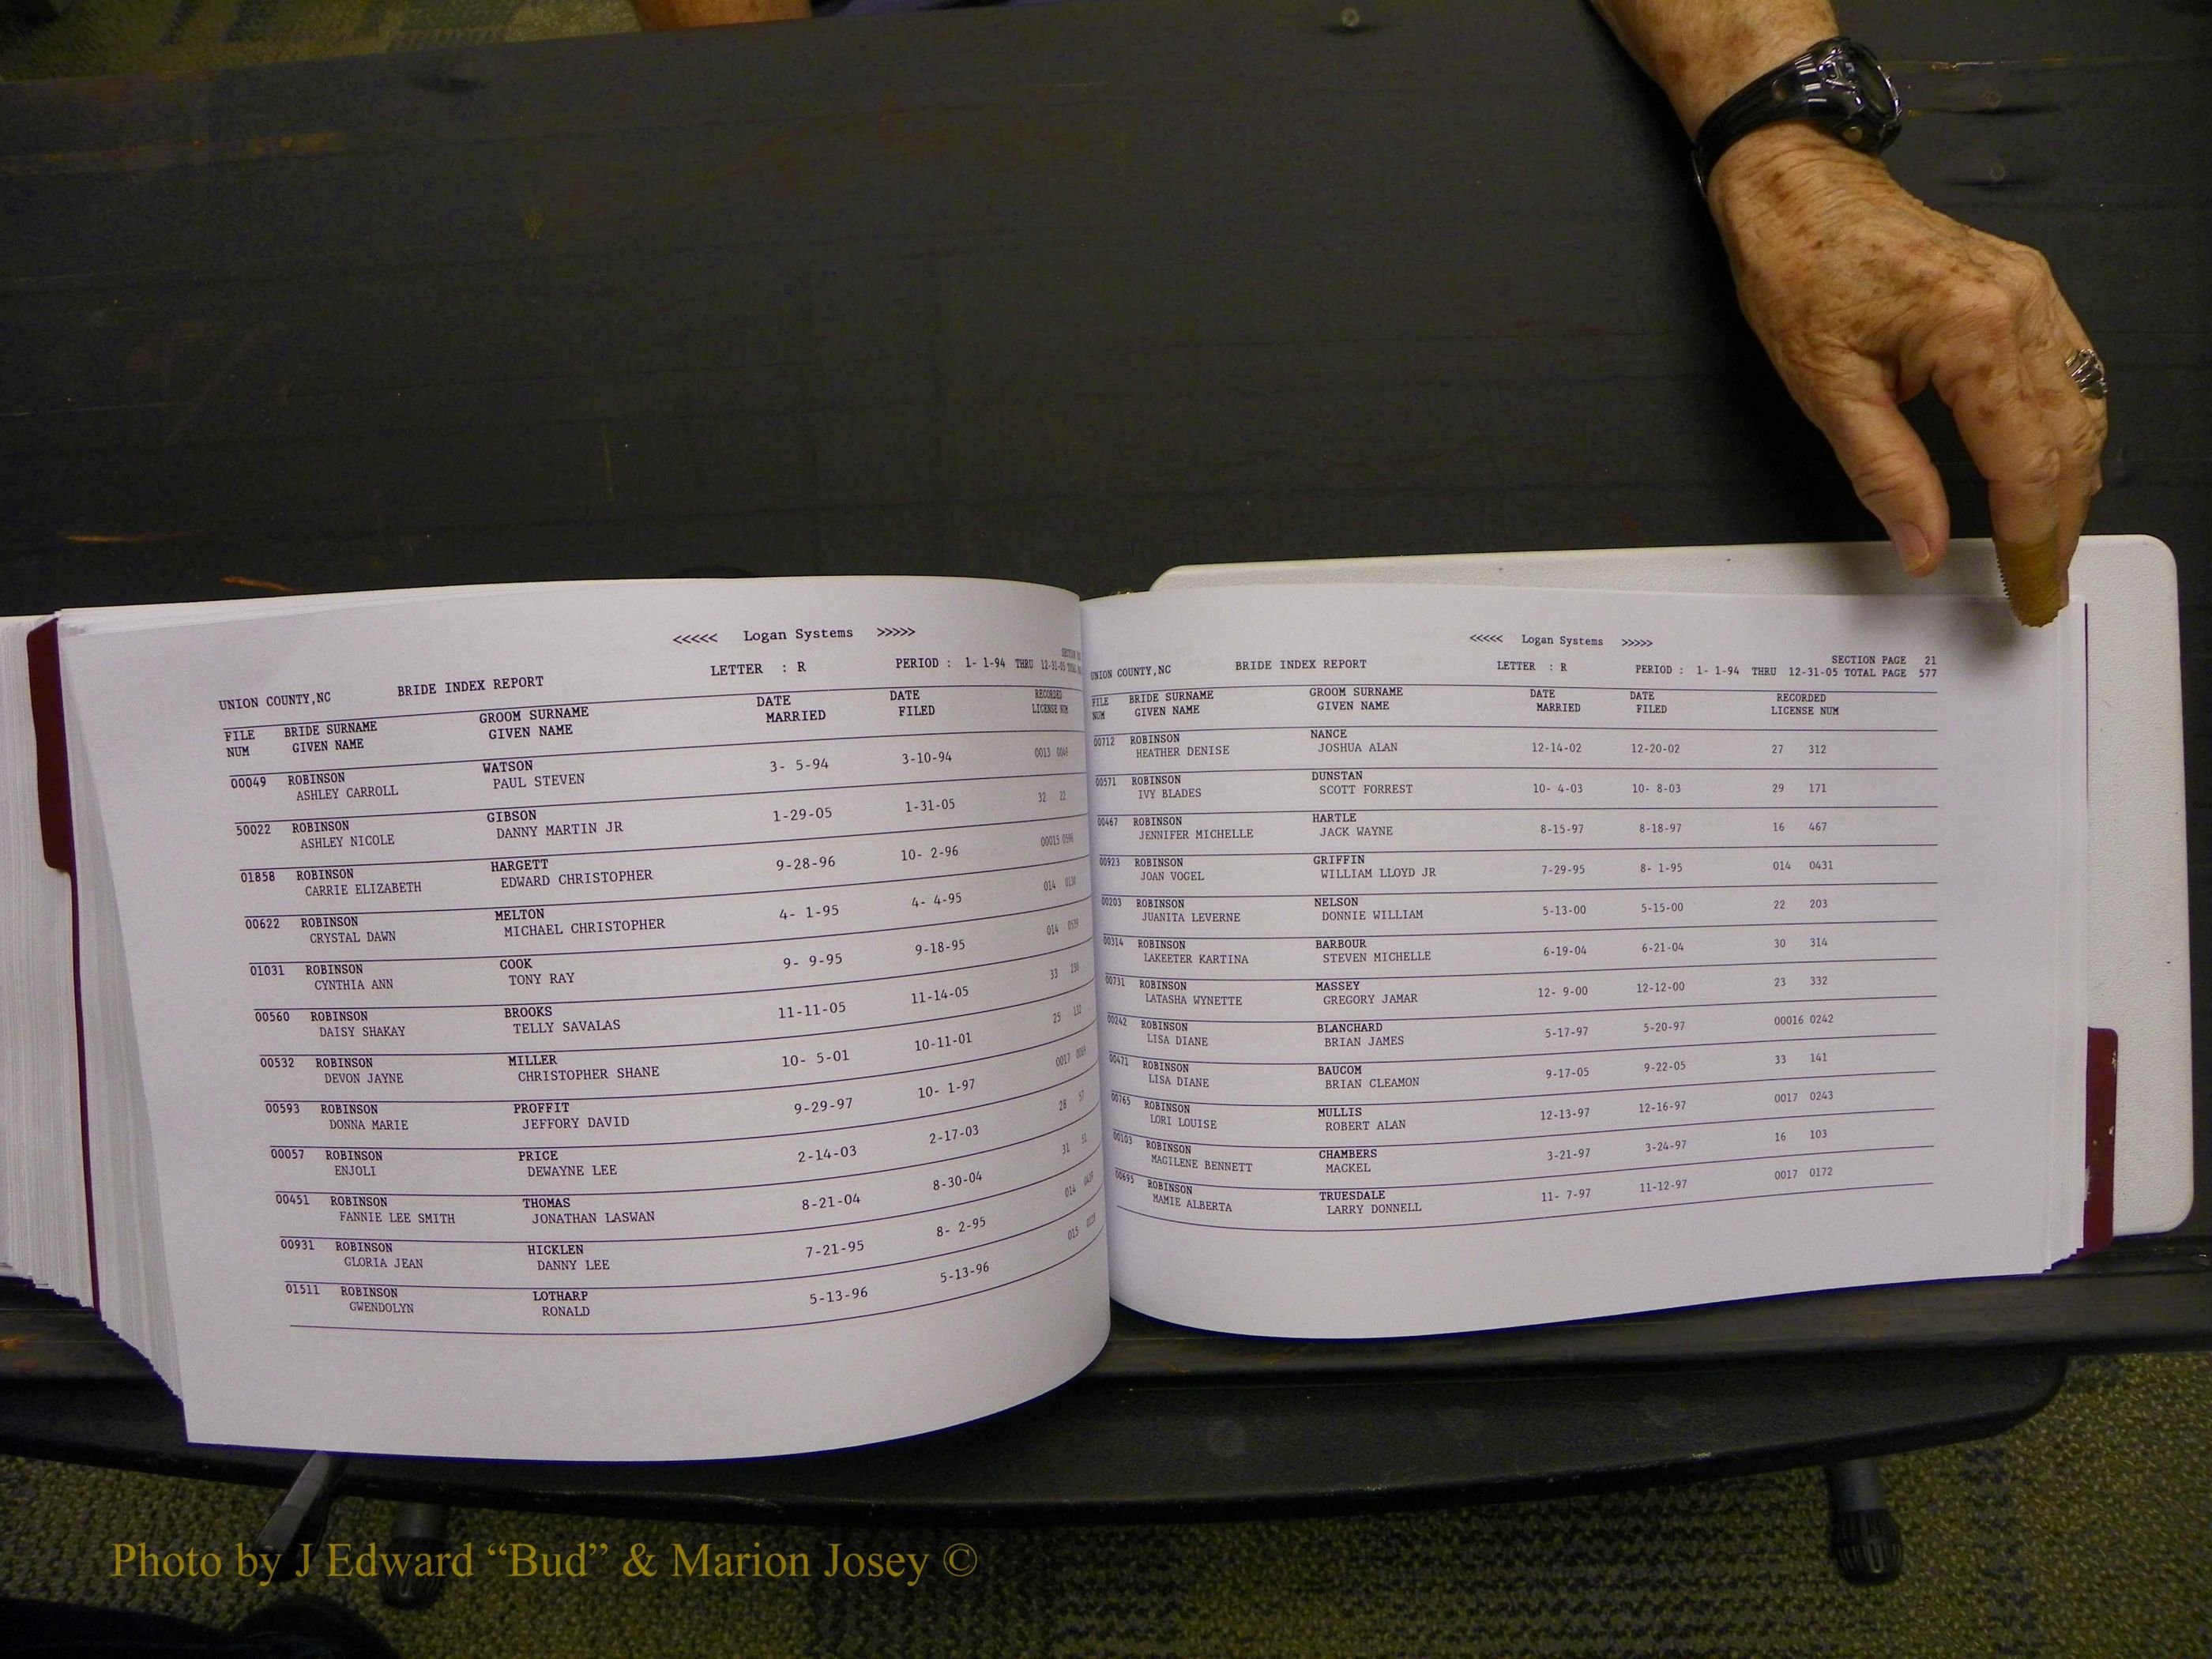 <<<<< Logan Systems >>>>>
UNION COUNTY,NC BRIDE INDEX REPORT LETTER : R PERIOD : 1- 1-94 THRU 12-31-05 TOTAL
FILE BRIDE SURNAME GROOM SURNAME DATE DATE RECORDED
NUM GIVEN NAME GIVEN NAME MARRIED FILED LICENSE NUM
00049 ROBINSON WATSON 3- 5-94 3-10-94 0013 0049
ASHLEY CARROLL PAUL STEVEN
50022 ROBINSON GIBSON 1-29-05 1-31-05 32 22
ASHLEY NICOLE DANNY MARTIN JR
01858 ROBINSON HARGETT 9-28-96 10- 2-96 00015 0596
CARRIE ELIZABETH EDWARD CHRISTOPHER
00622 ROBINSON MELTON 4- 1-95 4- 4-95 014 0130
CRYSTAL DAWN MICHAEL CHRISTOPHER
01031 ROBINSON COOK 9- 9-95 9-18-95 014 0539
CYNTHIA ANN TONY RAY
00560 ROBINSON BROOKS 11-11-05 11-14-05 33
DAISY SHAKAY TELLY SAVALAS
00532 ROBINSON MILLER 10- 5-01 10-11-01 25 132
DEVON JAYNE CHRISTOPHER SHANE
00593 ROBINSON PROFFIT 9-29-97 10- 1-97 0017
DONNA MARIE JEFFORY DAVID
00057 ROBINSON PRICE 2-14-03 2-17-03 28 57
ENJOLI DEWAYNE LEE
00451 ROBINSON THOMAS 8-21-04 8-30-04 31 51
FANNIE LEE SMITH JONATHAN LASWAN
00931 ROBINSON HICKLEN 7-21-95 8- 2-95 014
GLORIA JEAN DANNY LEE
01511 ROBINSON LOTHARP 5-13-96 5-13-96 015
GWENDOLYN RONALD
<<<<< Logan Systems >>>>>
SECTION PAGE 21
UNION COUNTY,NC BRIDE INDEX REPORT LETTER : R PERIOD : 1- 1-94 THRU 12-31-05 TOTAL PAGE 577
FILE BRIDE SURNAME GROOM SURNAME DATE DATE RECORDED
NUM GIVEN NAME GIVEN NAME MARRIED FILED LICENSE NUM
00712 ROBINSON NANCE 12-14-02 12-20-02 27 312
HEATHER DENISE JOSHUA ALAN
00571 ROBINSON DUNSTAN 10- 4-03 10- 8-03 29 171
IVY BLADES SCOTT FORREST
00467 ROBINSON HARTLE 8-15-97 8-18-97 16 467
JENNIFER MICHELLE JACK WAYNE
00923 ROBINSON GRIFFIN 7-29-95 8- 1-95 014 0431
JOAN VOGEL WILLIAM LLOYD JR
00203 ROBINSON NELSON 5-13-00 5-15-00 22 203
JUANITA LEVERNE DONNIE WILLIAM
00314 ROBINSON BARBOUR 6-19-04 6-21-04 30 314
LAKEETER KARTINA STEVEN MICHELLE
00731 ROBINSON MASSEY 12- 9-00 12-12-00 23 332
LATASHA WYNETTE GREGORY JAMAR
00242 ROBINSON BLANCHARD 5-17-97 5-20-97 00016 0242
LISA DIANE BRIAN JAMES
00471 ROBINSON BAUCOM 9-17-05 9-22-05 33 141
LISA DIANE BRIAN CLEAMON
00765 ROBINSON MULLIS 12-13-97 12-16-97 0017 0243
LORI LOUISE ROBERT ALAN
00103 ROBINSON CHAMBERS 3-21-97 3-24-97 16 103
MAGILENE BENNETT MACKEL
00695 ROBINSON TRUESDALE 11- 7-97 11-12-97 0017 0172
MAMIE ALBERTA LARRY DONNELL
Photo by J Edward “Bud” & Marion Josey ©